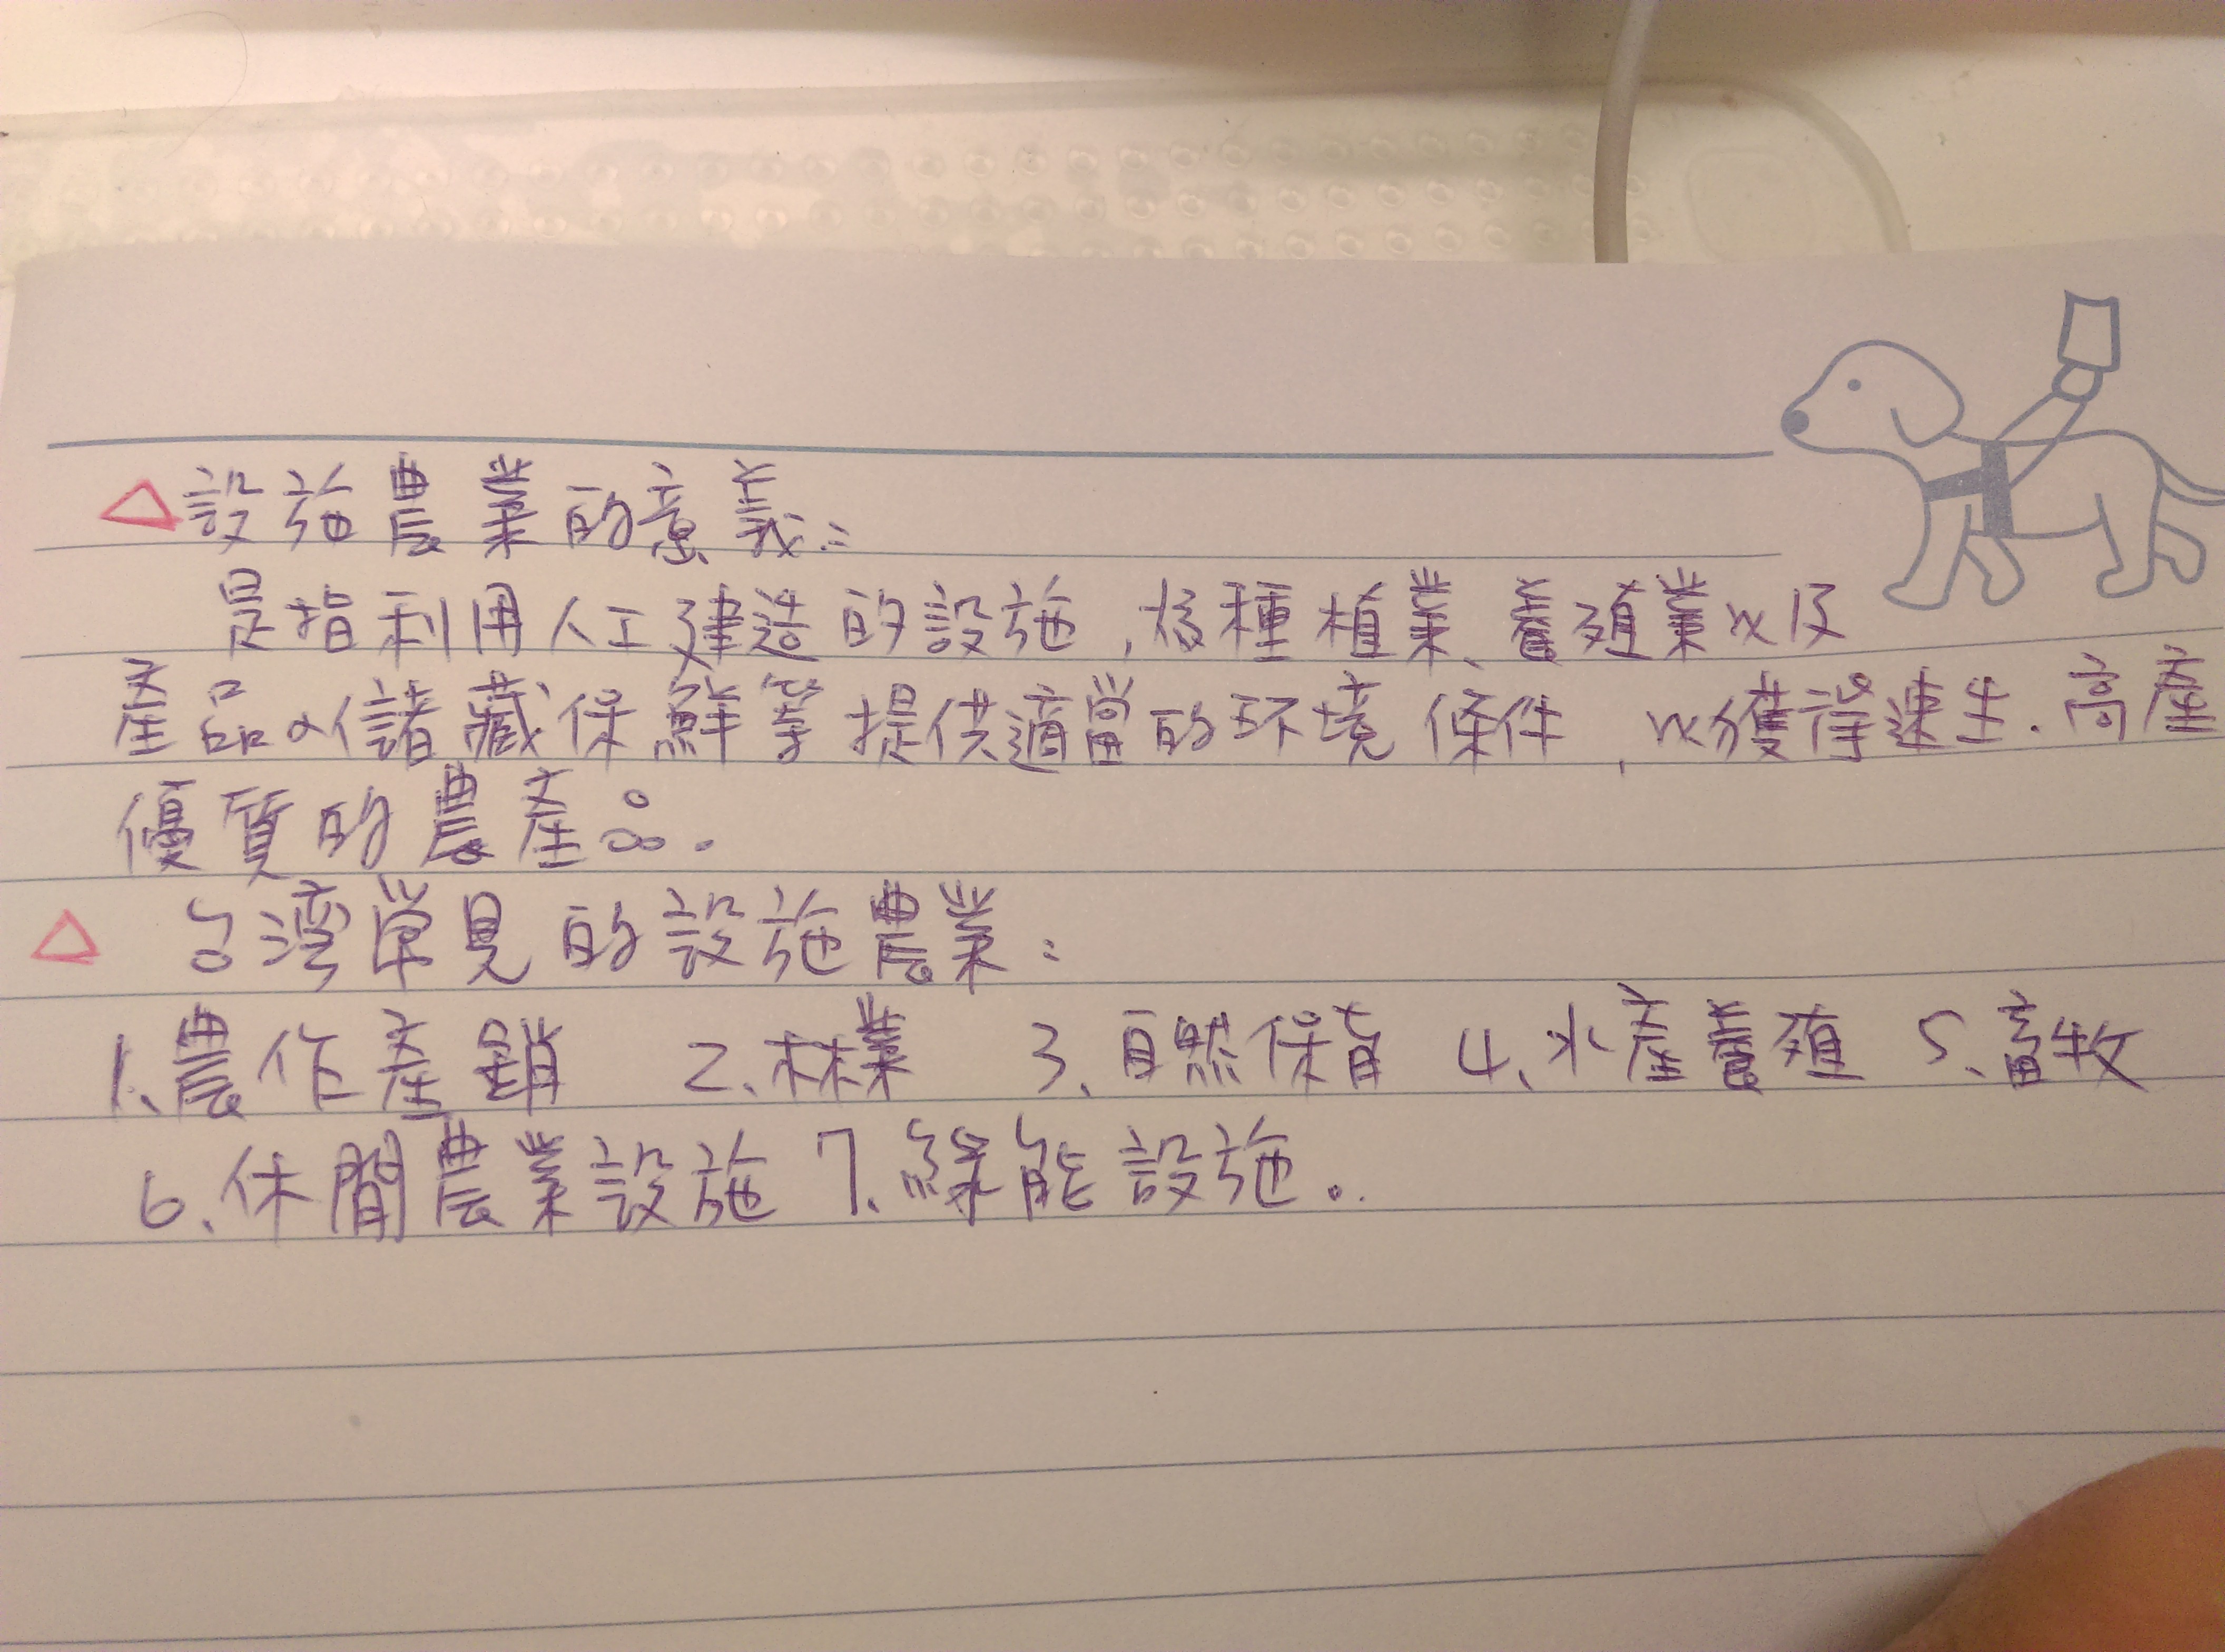 △設施農業的意義:
是指利用人工建造的設施,種植業、養殖業以及
產品の儲藏保鮮等提供適當的环境條件,以獲得速生.高產
優質的農產品.
△ 台灣常見的設施農業:
1.農作產銷 2.林業 3.自然保育 4.水產養殖 5.畜牧
6.休閒農業設施 7.綠能設施。